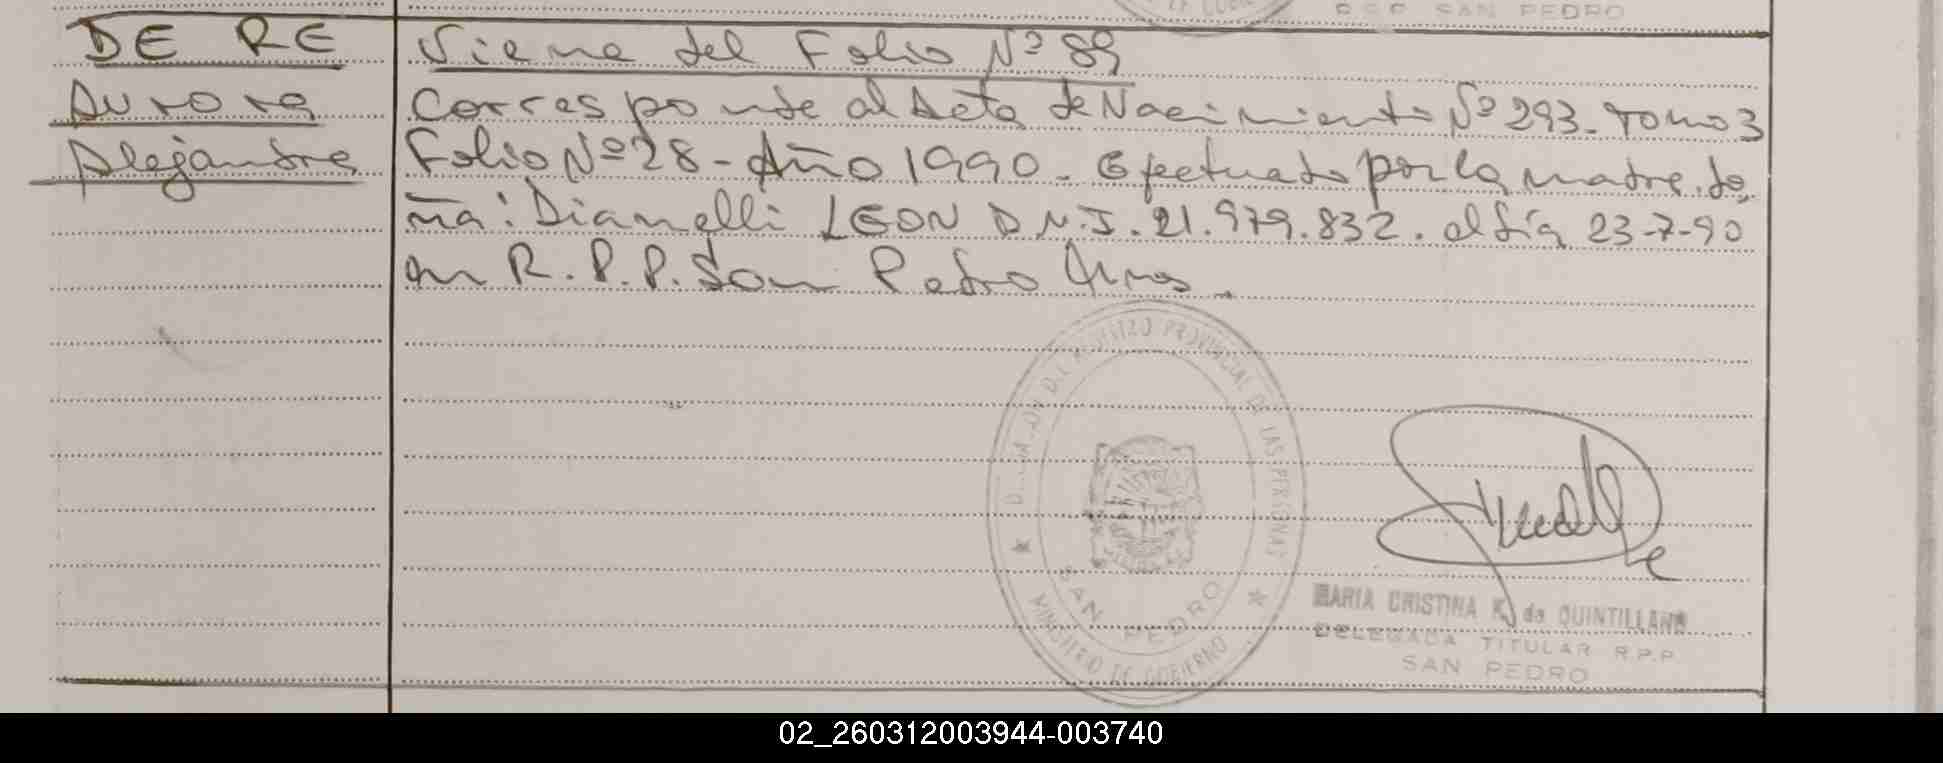 R.P.P. SAN PEDRO
DE RE
Aurora
Alejandra
Viene del Folio Nº 89
Corresponde al Acta de Nacimiento Nº 293. Tomo 3
Folio Nº 28 - Año 1990. Efectuado por la madre. do
ña: Dianelli LEON D.N.I. 21.979.832. el día 23-7-90
en R.P.P. San Pedro
REGISTRO PROVINCIAL DE LAS PERSONAS
SAN PEDRO
MINISTERIO DE GOBIERNO
MARIA CRISTINA K. de QUINTILLANA
DELEGADA TITULAR R.P.P.
SAN PEDRO
02_260312003944-003740